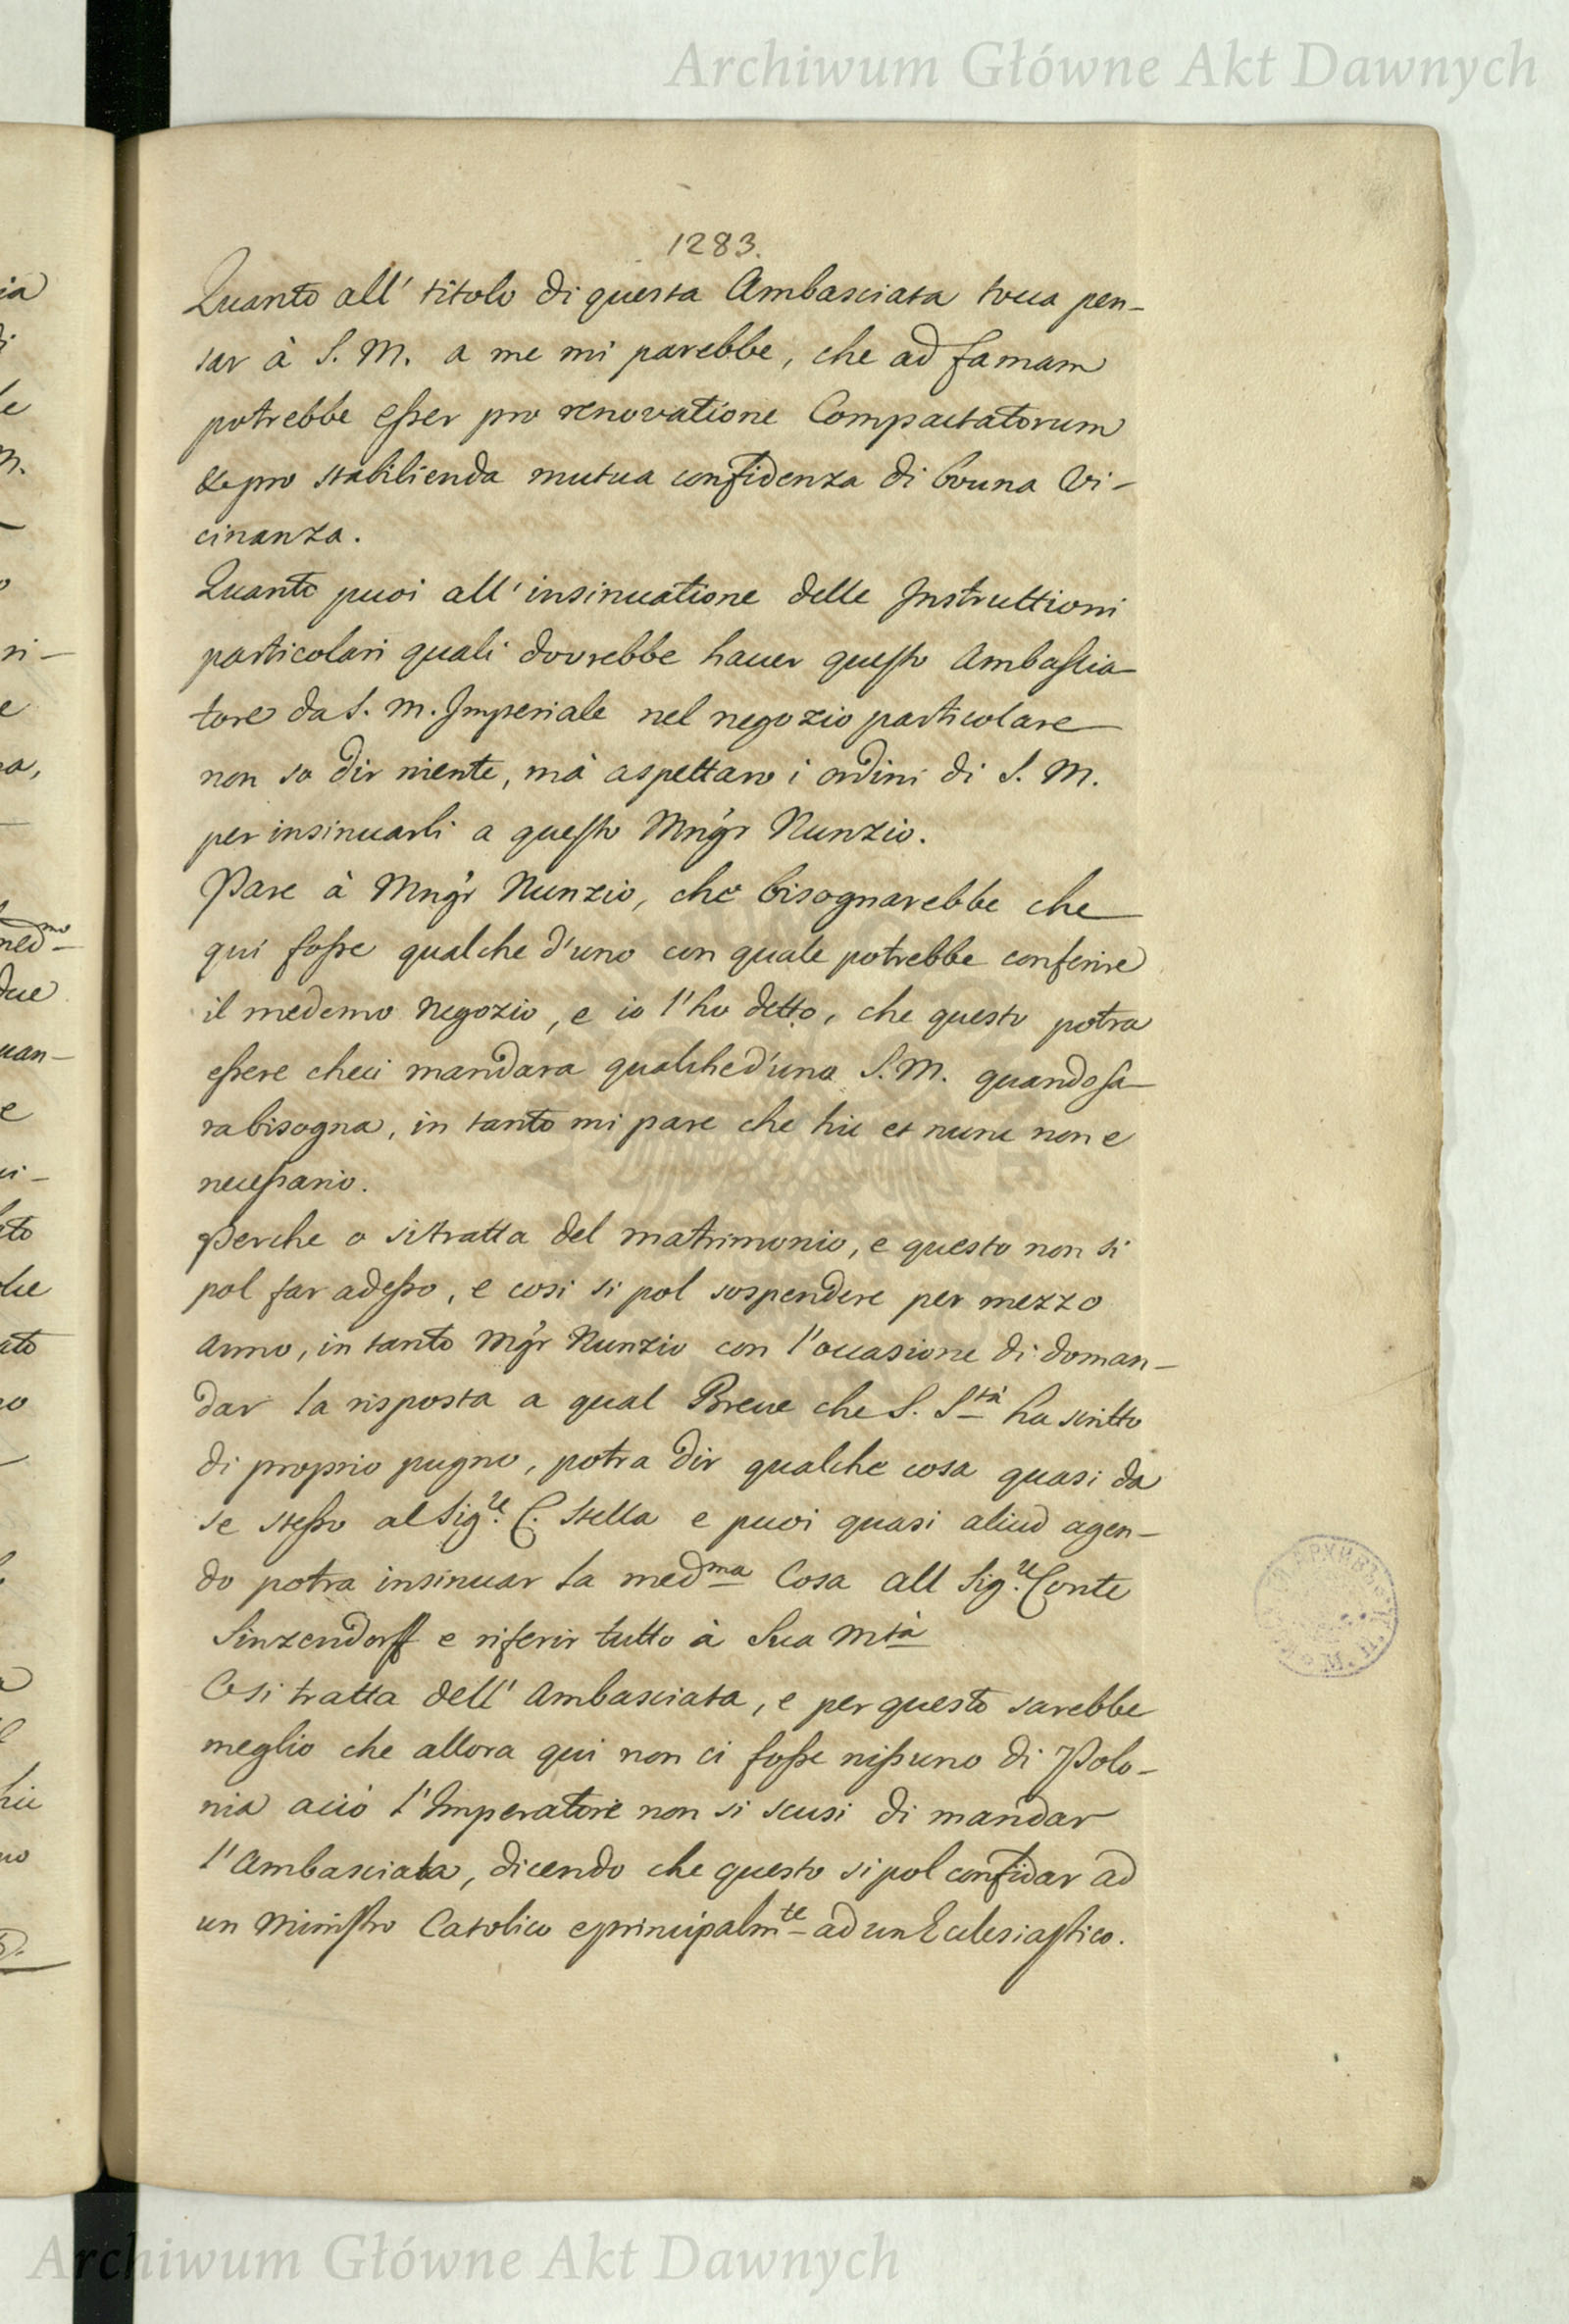 Archiwum Główne Akt Dawnych
1283.
Quanto all' titolo di questa Ambasciata tocca pen-
sar à S. M. a me mi parebbe, che ad famam
potrebbe esser pro renovatione Compactatorum
& pro stabilienda mutua confidenza di bouna Vi-
cinanza.
Quanto puoi all' insinuatione delle Instruttioni
particolari quali dovrebbe hauer questo Ambascia-
tore da S. M. Imperiale nel negozio particolare
non so dir niente, mà aspettaro i ordini di S. M.
per insinuarli a questo Mngr Nunzio.
Pare à Mngr Nunzio, che bisognarebbe che
qui fosse qualche d'uno con quale potrebbe conferire
il medemo Negozio, e io l'ho detto, che questo potra
essere che ci mandara qualched'uno S. M. quando sa-
ra bisogna, in tanto mi pare che hic et nunc non e
necessario.
Perche o si tratta del matrimonio, e questo non si
pol far adesso, e cosi si pol sospendere per mezzo
anno, in tanto Mgr Nunzio con l'occasione di doman-
dar la risposta a qual Breue che S. Stà ha scritto
di proprio pugno, potra dir qualche cosa quasi da
se stesso al Sig.re C. Stella e puoi quasi aliud agen-
do potra insinuar la medma Cosa all Sig.re Conte
Sinzendorff e riferir tutto à Sua Mtà
O si tratta dell' Ambasciata, e per questo sarebbe
meglio che allora qui non ci fosse nissuno di Polo-
nia acciò l'Imperatore non si scusi di mandar
l'Ambasciata, dicendo che questo si pol confidar ad
un Ministro Catolico e principalmte ad un Eclesiastico.
Archiwum Główne Akt Dawnych